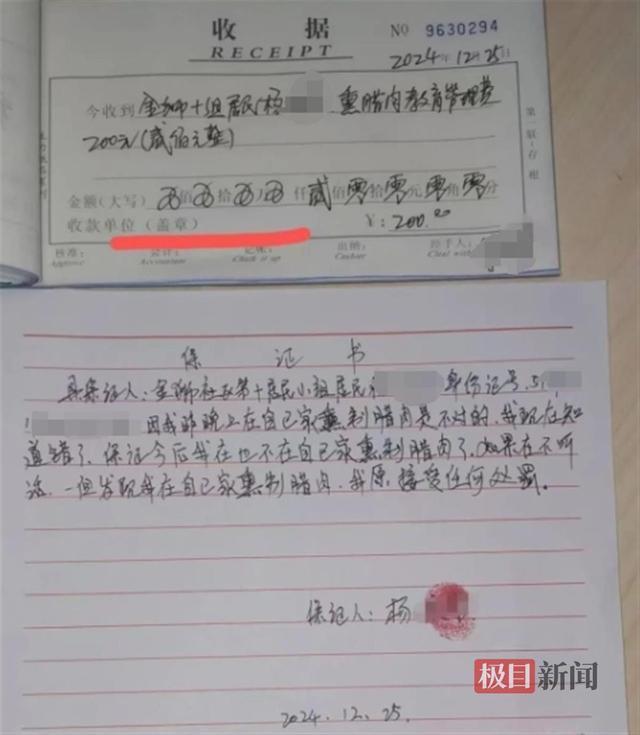 收据
RECEIPT
No 9630294
2024年12月25日
今收到 金狮十组居民杨 熏腊肉教育管理费
200元(贰佰元整)
金额(大写) 佰 拾 仟贰佰零拾零元零角零分
收款单位(盖章) ¥:200.00
核准: 会计: 记帐: 出纳: 经手人:
Approve Accountant Chalk it up Cashier Cleal with
第一联(存根)
保证书
具保证人:金狮社区第十居民小组居民 身份证号,5
因我昨晚上在自己家熏制腊肉是不对的,我现在知
道错了,保证今后我在也不在自己家熏制腊肉了,如果在不听
话,一但发现我在自己家熏制腊肉,我愿接受任何处罚。
保证人:杨
极目新闻
2024.12.25.